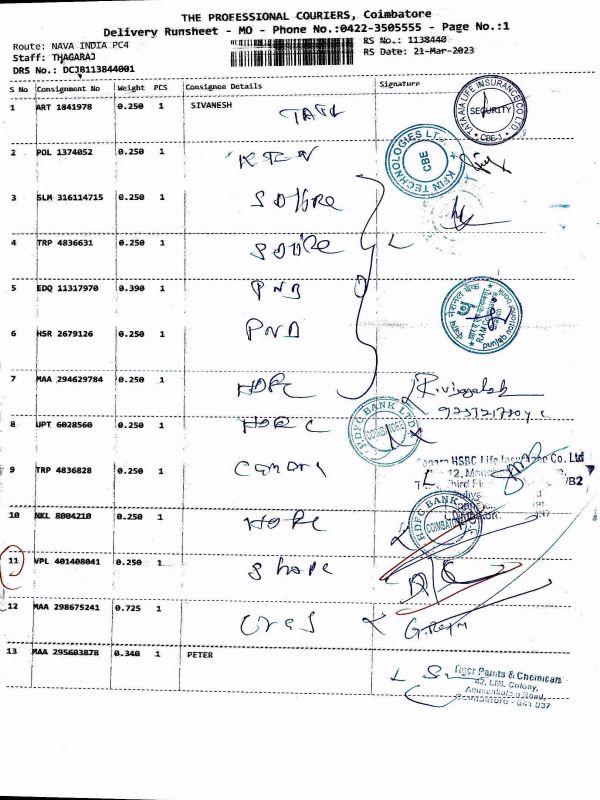 THE PROFESSIONAL COURIERS, Coimbatore
Delivery Runsheet - MO - Phone No.:0422-3505555 - Page No.:1
Route: NAVA INDIA PC4
RS No.: 1138440
Staff: THAGARAJ
RS Date: 21-Mar-2023
DRS No.: DCJB113844001
S No Consignment No Weight PCS Consignee Details Signature
1 ART 1841978 0.250 1 SIVANESH TATA
TATA AIA LIFE INSURANCE CO LTD
SECURITY
CBE-1
2 POL 1374052 0.250 1 KFIN
KFIN TECHNOLOGIES LT
CBE
3 SLM 316114715 0.250 1
4 TRP 4836631 0.250 1
5 EDQ 11317970 0.390 1 PNB
punjab national bank
6 HSR 2679126 0.250 1 PNB
7 MAA 294629784 0.250 1 HDFC
8 UPT 6028560 0.250 1 HDFC
HDFC BANK LTD
COIMBATORE
9 TRP 4836828 0.250 1 Canara
Canara HSBC Life Insurance Co. Ltd
10 NKL 8004210 0.250 1 HDFC
HDFC BANK
COIMBATORE
11 VPL 401408041 0.250 1
12 MAA 298675241 0.725 1
13 MAA 295603878 0.340 1 PETER
Tiger Paints & Chemicals
42, LML Colony,
Ammankulam Road,
COIMBATORE - 641 037